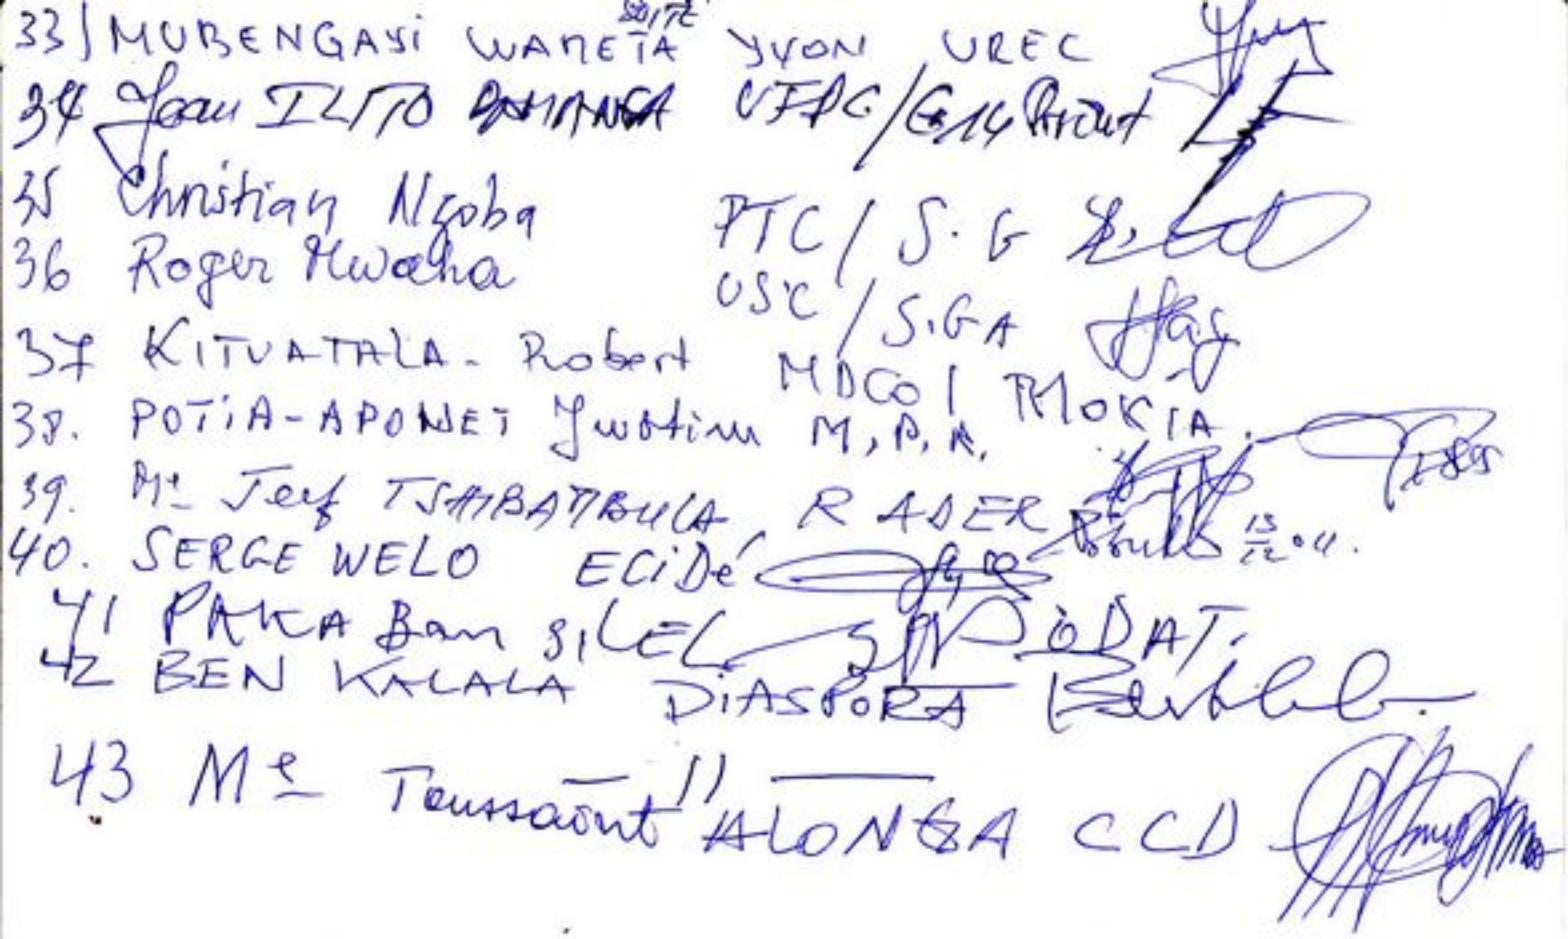 33) MUBENGAYI WAMETA SUITE YVON UREC
34 Jean ILITO UFDC/G14
35 Christian Ngoba PTC/S.G
36 Roger Mwana USC/S.G A
37 KITUATALA - Robert MDCO/
38. POTIA-APONET M.P.R.
39. Me Jeef TSHIBAMBULA RADER
40. SERGE WELO ECiDé
41 PAKA Ban SiLEL ODAT.
42 BEN KALALA DiASPORA
— // —
43 Me Toussaint ALONGA CCD